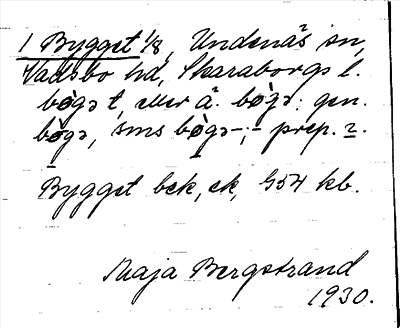 1 Bygget 1/8, Undenäs sn,
Vadsbo hd, Skaraborgs l.
bø̀gə t, eller ä. bø̀gə: gen.
bø̀gə, sms bø̀gə-; - prep. 2.
Bygget bek, ek, G54 kb.
Maja Bergstrand
1930.